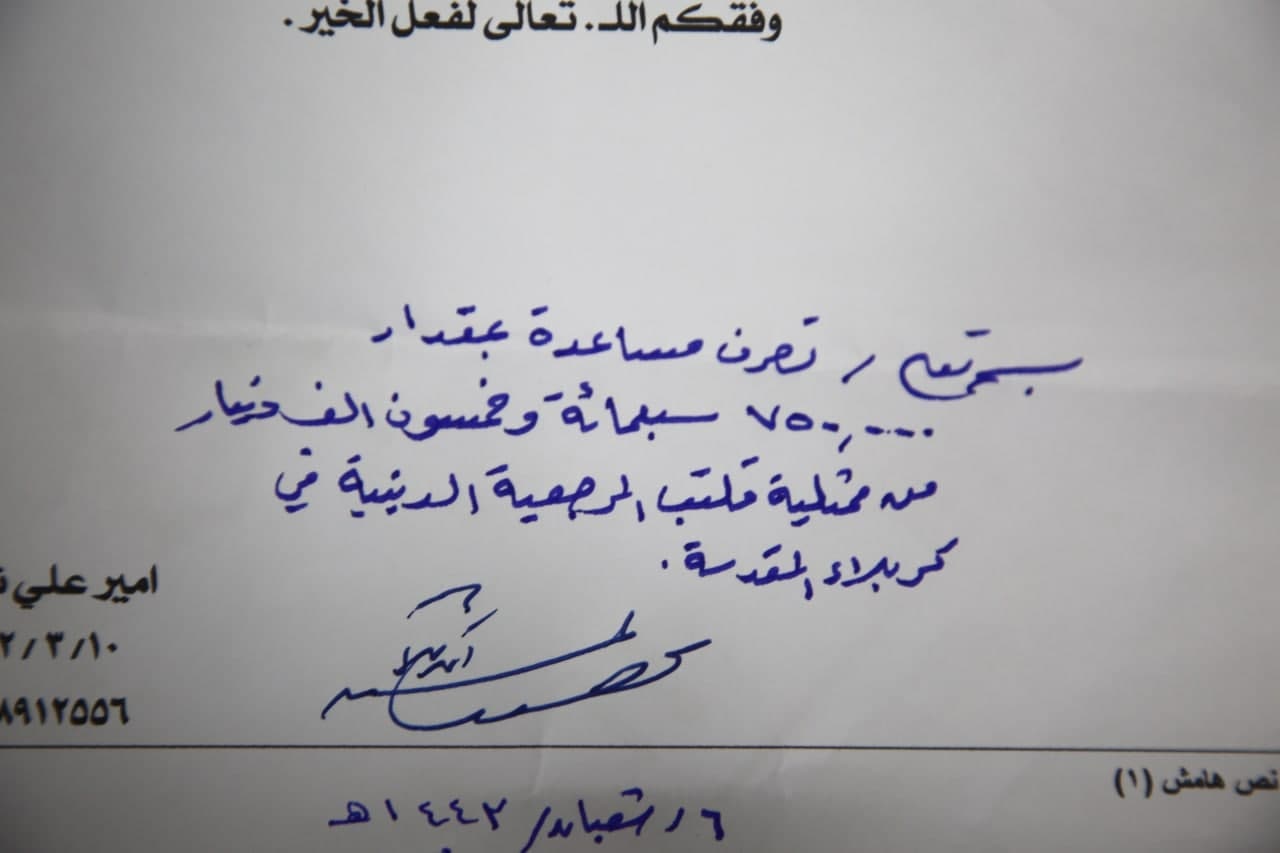 وفقكم اللـ. تعالى لفعل الخير.
بسمه تعالى / تصرف مساعدة بمقدار
٧٥٠,٠٠٠ سبعمائة وخمسون الف دينار
من ممثلية مكتب المرجعية الدينية في
كربلاء المقدسة.
امير علي
٢/٣/١٠
٨٩١٢٥٥٦
نص هامش (١)
٦ / شعبان / ١٤٤٣ هـ